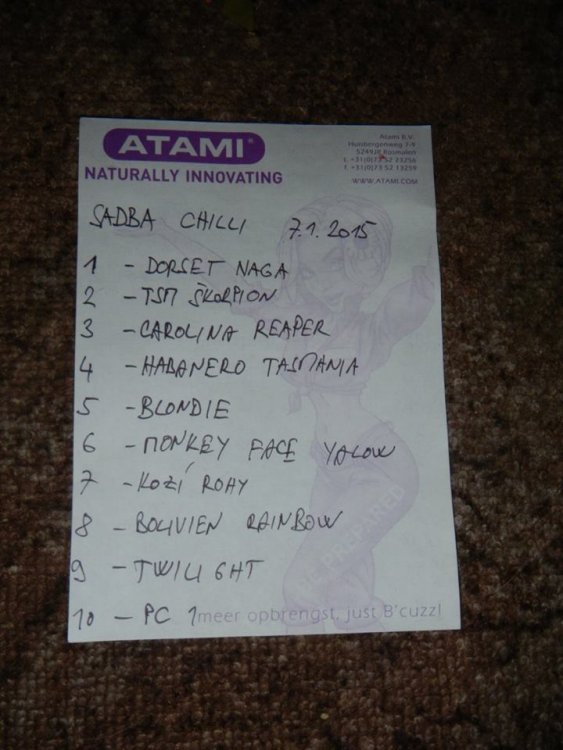 ATAMI®
NATURALLY INNOVATING
Atami B.V.
Huisbergenweg 7-9
5249JR Rosmalen
t. +31(0)73 52 23256
f. +31(0)73 52 13259
WWW.ATAMI.COM
SADBA CHILLI 7.1.2015
1 - DORSET NAGA
2 - TSM ŠKORPION
3 - CAROLINA REAPER
4 - HABANERO TASMANIA
5 - BLONDIE
6 - MONKEY FACE YALOW
7 - KOZÍ ROHY
8 - BOLIVIEN RAINBOW
9 - TWILIGHT
10 - PC 1
meer opbrengst, just B'cuzz!
BE PREPARED